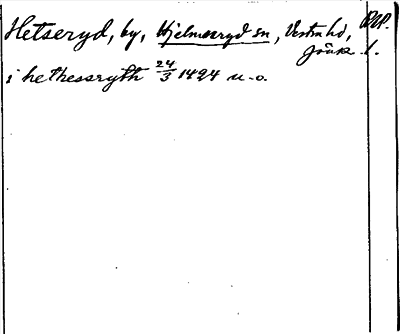 Hetseryd, by, Hjelmseryd sn, Vestra hd,
Jönk. l.
i hethessryth 24/3 1494 u. o.